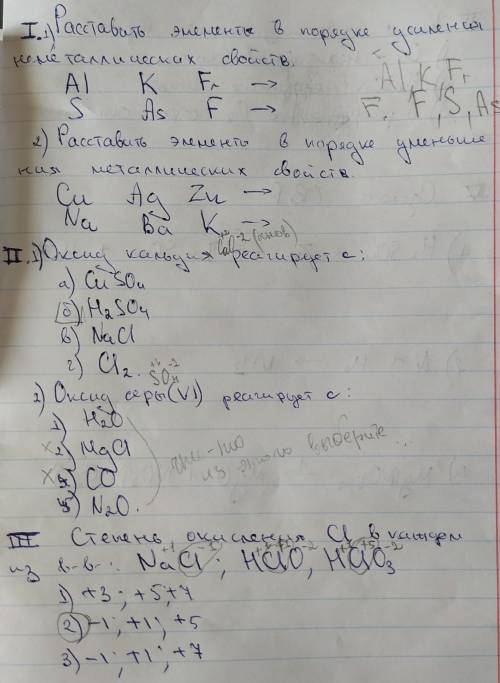 I. 1) Расставить элементы в порядке усиления
неметаллических свойств.
Al K Fr → Al K Fr
S As F → F. F, S, As
2) Расставить элементы в порядке уменьше
ния металлических свойств.
Cu Ag Zn →
Na Ba K →
II. 1) Оксид кальция реагирует с:
а) CuSO4
б) H2SO4
в) NaCl
г) Cl2.
2) Оксид серы (VI) реагирует с:
1) H2O
x 2) MgCl
x 3) CO
5) N2O.
из этого выберите...
III Степень окисления Cl в каждом
из в-в: NaCl; HClO, HClO3
1) +3; +5; +7
2) -1; +1; +5
3) -1; +1; +7